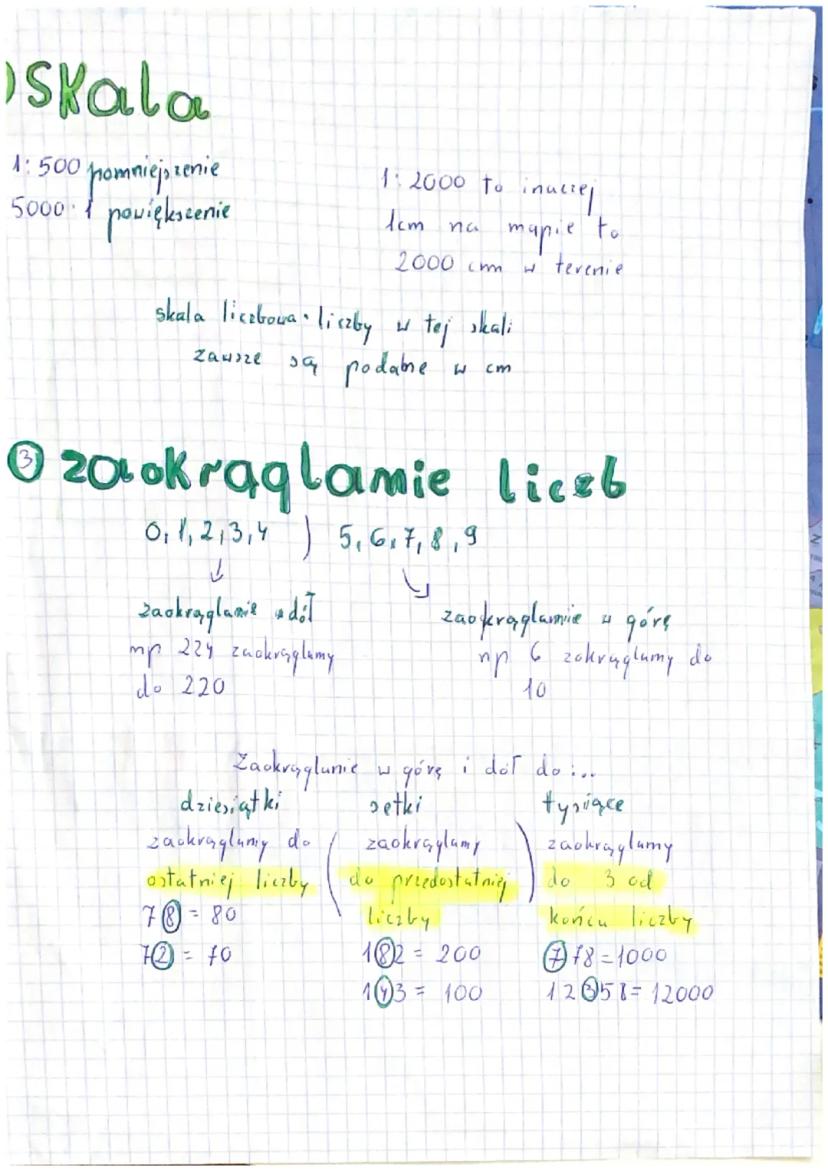 Skala
1:500 pomniejszenie
5000:1 powiększenie
1:2000 to inaczej
1cm na mapie to
2000 cm w terenie
skala liczbowa · liczby w tej skali
zawsze są podane w cm
3 zaokrąglamie liczb
0, 1, 2, 3, 4 ) 5, 6, 7, 8, 9
zaokrąglanie w dół
np 224 zaokrąglamy
do 220
zaokrąglamie w górę
np 6 zokrąglamy do
10
Zaokrąglanie w górę i dół do:...
dziesiątki
zaokrąglamy do
ostatniej liczby
78 = 80
72 = 70
setki
zaokrąglamy
do przedostatniej
liczby
182 = 200
143 = 100
tysiące
zaokrąglamy
do 3 od
końca liczby
778=1000
12358=12000